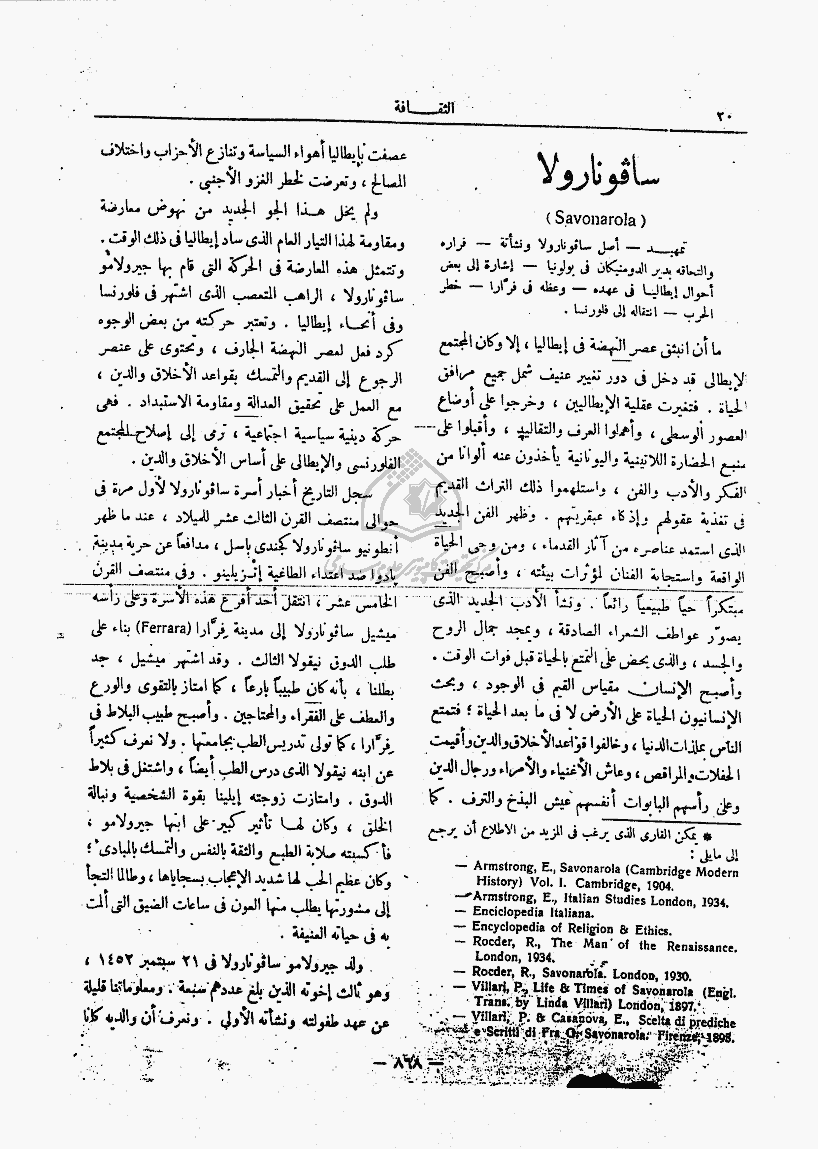 الثقـــافة
٢٠
ساڤونارولا
(Savonarola)
تمهيـــد — أصل ساڤونارولا ونشأته — فراره
والتحاقه بدير الدومنيكان فى بولونيا — إشارة إلى بعض
أحوال إيطاليـا فى عهده — وعظه فى فرّارا — خطر
الحرب — انتقاله إلى فلورنسا .
ما أن انبثق عصر النهضة فى إيطاليا ، إلا وكان المجتمع
الإيطالى قد دخل فى دور تغيير عنيف شمل جميع مرافق
الحياة . فتغيرت عقلية الإيطاليين ، وخرجوا على أوضاع
العصور الوسطى ، وأهملوا العرف والتقاليد ، وأقبلوا على
منبع الحضارة اللاتينية واليونانية يأخذون عنه ألوانا من
الفكر والأدب والفن ، واستلهموا ذلك التراث القديم
فى تغذية عقولهم وإذكاء عبقريتهم . وظهر الفن الجديد
الذى استمد عناصره من آثار القدماء ، ومن وحى الحياة
الواقعة واستجابة الفنان لمؤثرات بيئته ، وأصبح الفن
مبتكراً حياً طبيعياً رائعاً . ونشأ الأدب الجديد الذى
يصوّر عواطف الشعراء الصادقة ، ويمجد جمال الروح
والجسد ، والذى يحض على التمتع بالحياة قبل فوات الوقت .
وأصبح الإنسان مقياس القيم فى الوجود ، وبحث
الإنسانيون الحياة على الأرض لا فى ما بعد الحياة ؛ فتمتع
الناس بملذات الدنيا ، وخالفوا قواعد الأخلاق والدين وأقيمت
الحفلات والمراقص ، وعاش الأغنياء والأمراء ورجال الدين
وعلى رأسهم البابوات أنفسهم عيش البذخ والترف . كما
* يمكن القارئ الذى يرغب فى المزيد من الاطلاع أن يرجع
إلى مايلى :
— Armstrong, E., Savonarola (Cambridge Modern
History) Vol. I. Cambridge, 1904.
— Armstrong, E., Italian Studies London, 1934.
— Enciclopedia Italiana.
— Encyclopedia of Religion & Ethics.
— Rocder, R., The Man of the Renaissance.
London, 1934.
— Rocder, R., Savonarola. London, 1930.
— Villari, P., Life & Times of Savonarola (Engl.
Trans. by Linda Villari) London, 1897.
— Villari, P. & Casanova, E., Scelta di prediche
e Scritti di Fra G. Savonarola. Firenze, 1898.
عصفت بإيطاليا أهواء السياسة وتنازع الأحزاب واختلاف
المصالح ، وتعرضت لخطر الغزو الأجنبى .
ولم يخل هـذا الجو الجديد من نهوض معارضة
ومقاومة لهذا التيار العام الذى ساد إيطاليا فى ذلك الوقت .
وتتمثل هذه المعارضة فى الحركة التى قام بها جيرولامو
ساڤونارولا ، الراهب المتعصب الذى اشتهر فى فلورنسا
وفى أنحـاء إيطاليا . وتعتبر حركته من بعض الوجوه
كرد فعل لعصر النهضة الجارف ، وتحتوى على عنصر
الرجوع إلى القديم والتمسك بقواعد الأخلاق والدين ،
مع العمل على تحقيق العدالة ومقاومة الاستبداد . فهى
حركة دينية سياسية اجتماعية ، ترمى إلى إصلاح المجتمع
الفلورنسى والإيطالى على أساس الأخلاق والدين .
سجل التاريخ أخبار أسرة ساڤونارولا لأول مرة فى
حوالى منتصف القرن الثالث عشر للميلاد ، عند ما ظهر
أنطونيو ساڤونارولا كجندى باسل ، مدافعاً عن حرية مدينة
پادوا ضد اعتداء الطاغية إتزيلينو . وفى منتصف القرن
الخامس عشر ، انتقل أحد أفرع هذه الأسرة وعلى رأسه
ميشيل ساڤونارولا إلى مدينة فرّارا (Ferrara) بناء على
طلب الدوق نيقولا الثالث . وقد اشتهر ميشيل ، جد
بطلنا ، بأنه كان طبيباً بارعاً ، كما امتاز بالتقوى والورع
والعطف على الفقراء والمحتاجين . وأصبح طبيب البلاط فى
فرّارا ، كما تولى تدريس الطب بجامعتها . ولا نعرف كثيراً
عن ابنه نيقولا الذى درس الطب أيضاً ، واشتغل فى بلاط
الدوق . وامتازت زوجته إيلينا بقوة الشخصية ونبالة
الخلق ، وكان لهـا تأثير كبير على ابنها جيرولامو ،
فأكسبته صلابة الطبع والثقة بالنفس والتمسك بالمبادئ ؛
وكان عظيم الحب لها شديد الإعجاب بسجاياها ، وطالما التجأ
إلى مشورتها يطلب منها العون فى ساعات الضيق التى ألمت
به فى حياته العنيفة .
ولد جيرولامو ساڤونارولا فى ٢١ سبتمبر ١٤٥٢ ،
وهو ثالث إخوته الذين بلغ عددهم سبعة . ومعلوماتنا قليلة
عن عهد طفولته ونشأته الأولى . ونعرف أن والديه كانا
— ٨٦٨ —